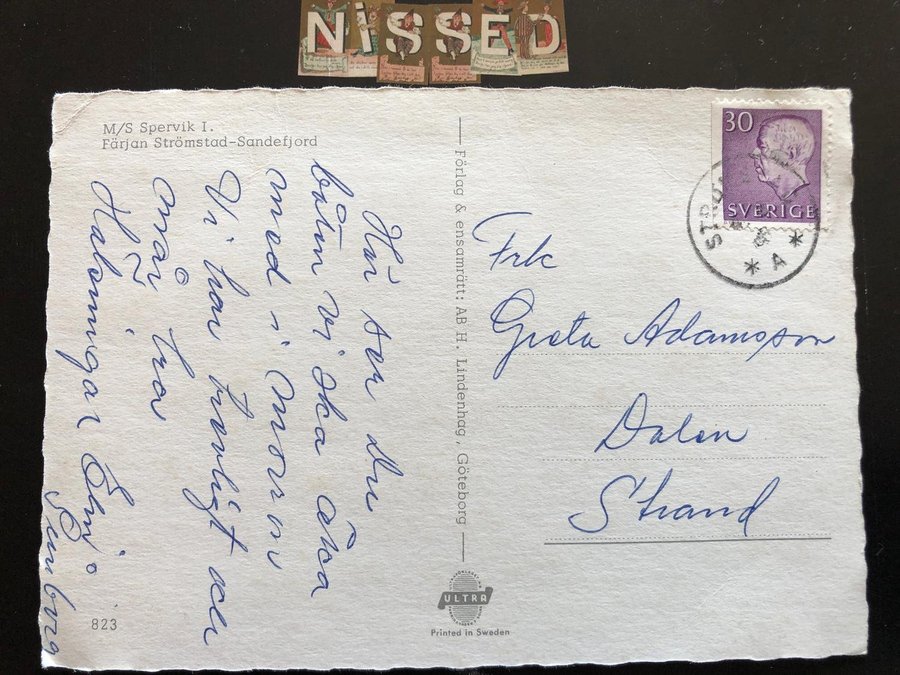 NISSED
M/S Spervik I.
Färjan Strömstad-Sandefjord
Här ser du
båten vi ska åka
med i morron
Vi har trevligt och
mår bra
Hälsningar Elvi o
Gunborg
823
Förlag & ensamrätt: AB H. Lindenhag, Göteborg
ULTRA
Printed in Sweden
30
SVERIGE
A
Frk
Greta Adamsson
Dalen
Strand